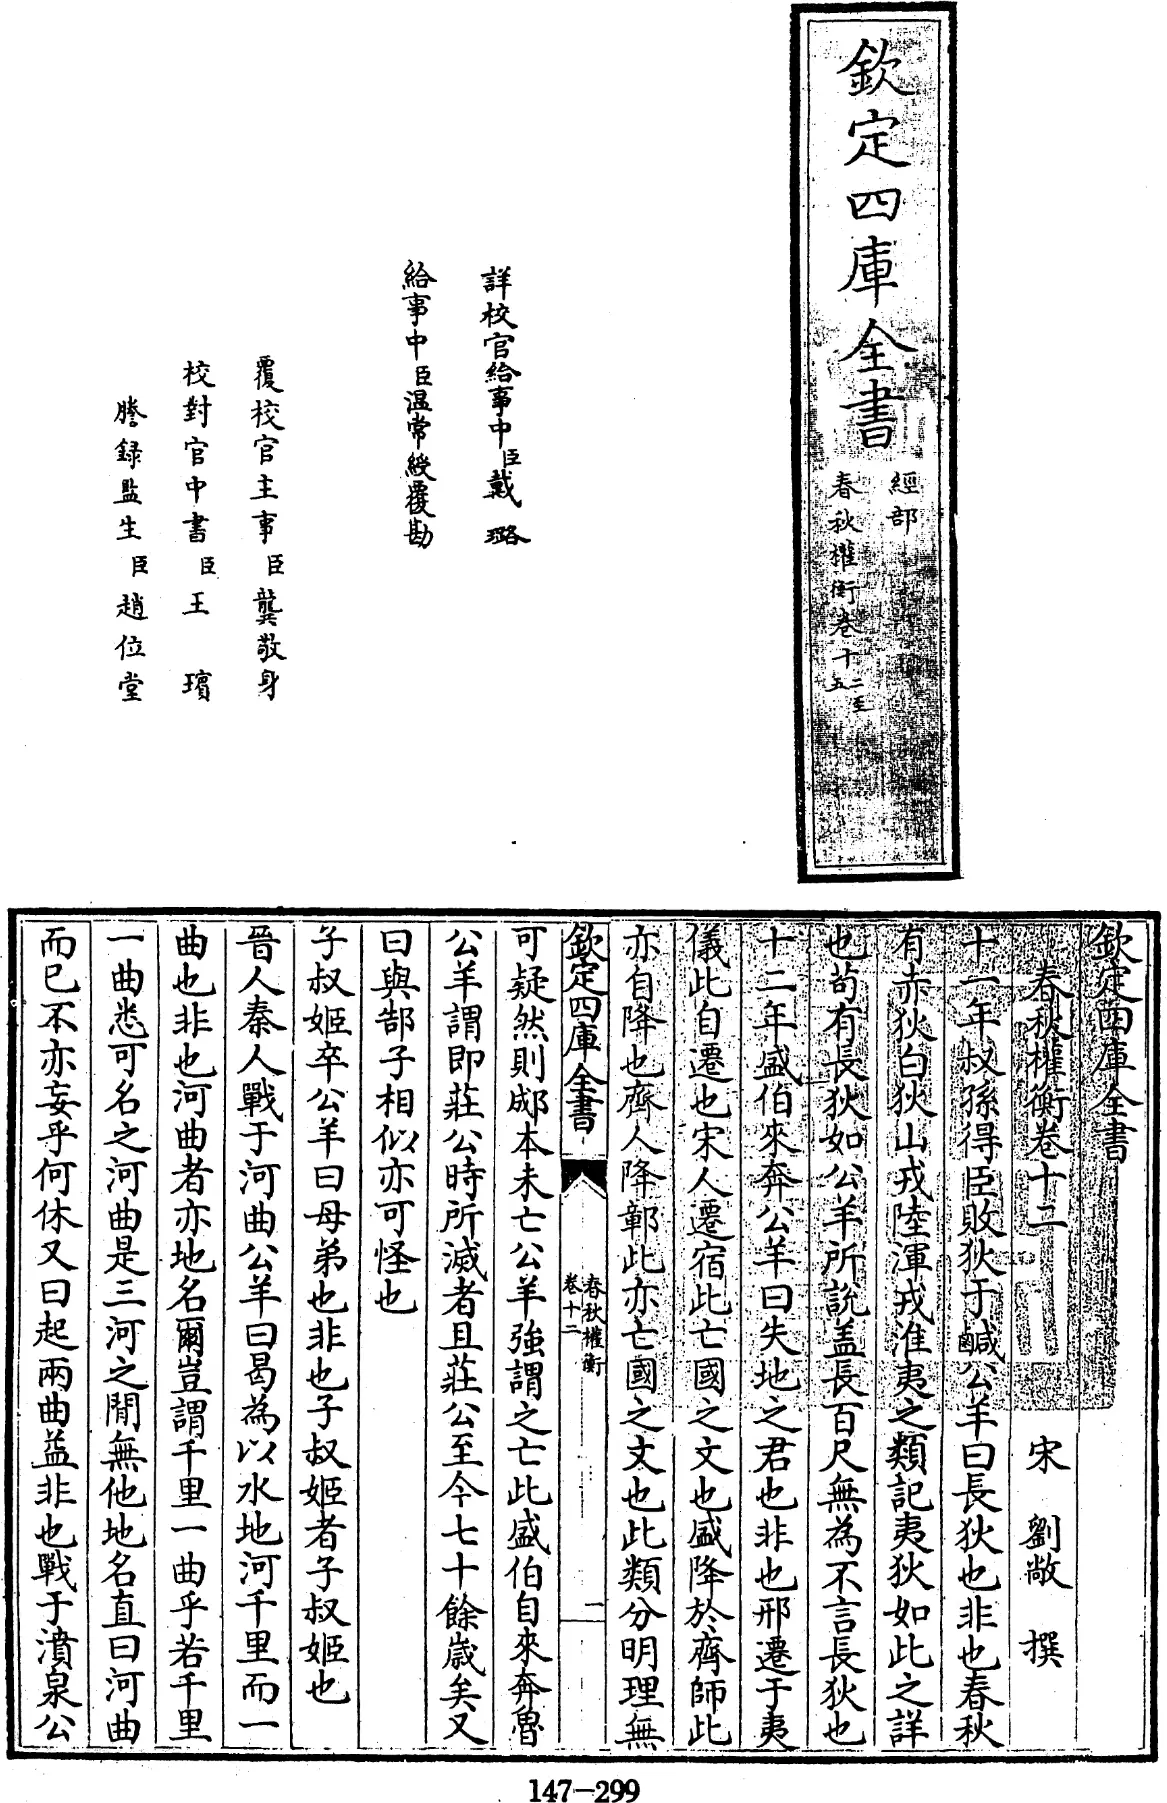 欽定四庫全書
經部
春秋權衡卷十二至五
詳校官給事中臣戴璐
給事中臣溫常綬覆勘
覆校官主事臣龔敬身
校對官中書臣王璸
謄録監生臣趙位堂
欽定四庫全書
春秋權衡卷十二
宋劉敞撰
十一年叔孫得臣敗狄于鹹公羊曰長狄也非也春秋
有赤狄白狄山戎陸渾戎淮夷之類記夷狄如此之詳
也茍有長狄如公羊所説盖長百尺無為不言長狄也
十二年盛伯來奔公羊曰失地之君也非也邢遷于夷
儀此自遷也宋人遷宿此亡國之文也盛降於齊師此
亦自降也齊人降鄣此亦亡國之文也此類分明理無
欽定四庫全書
春秋權衡
卷十二
一
可疑然則郕本未亡公羊強謂之亡此盛伯自來奔魯
公羊謂即莊公時所滅者且莊公至今七十餘歲矣又
曰與郜子相似亦可怪也
子叔姬卒公羊曰母弟也非也子叔姬者子叔姬也
晉人秦人戰于河曲公羊曰曷為以水地河千里而一
曲也非也河曲者亦地名爾豈謂千里一曲乎若千里
一曲悉可名之河曲是三河之間無他地名直曰河曲
而已不亦妄乎何休又曰起兩曲益非也戰于濆泉公
147-299